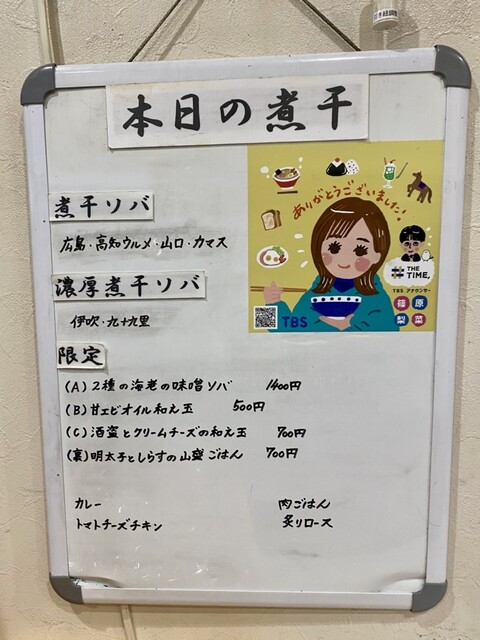 本日の煮干
煮干ソバ
広島・高知ウルメ・山口・カマス
濃厚煮干ソバ
伊吹・九十九里
限定
(A) 2種の海老の味噌ソバ 1400円
(B) 甘エビオイル和え玉 500円
(C) 酒盗とクリームチーズの和え玉 700円
(裏) 明太子としらすの山盛ごはん 700円
カレー 肉ごはん
トマトチーズチキン 炙りロース
ありがとうございました!
THE
TIME,
TBS アナウンサー
篠原
梨菜
TBS